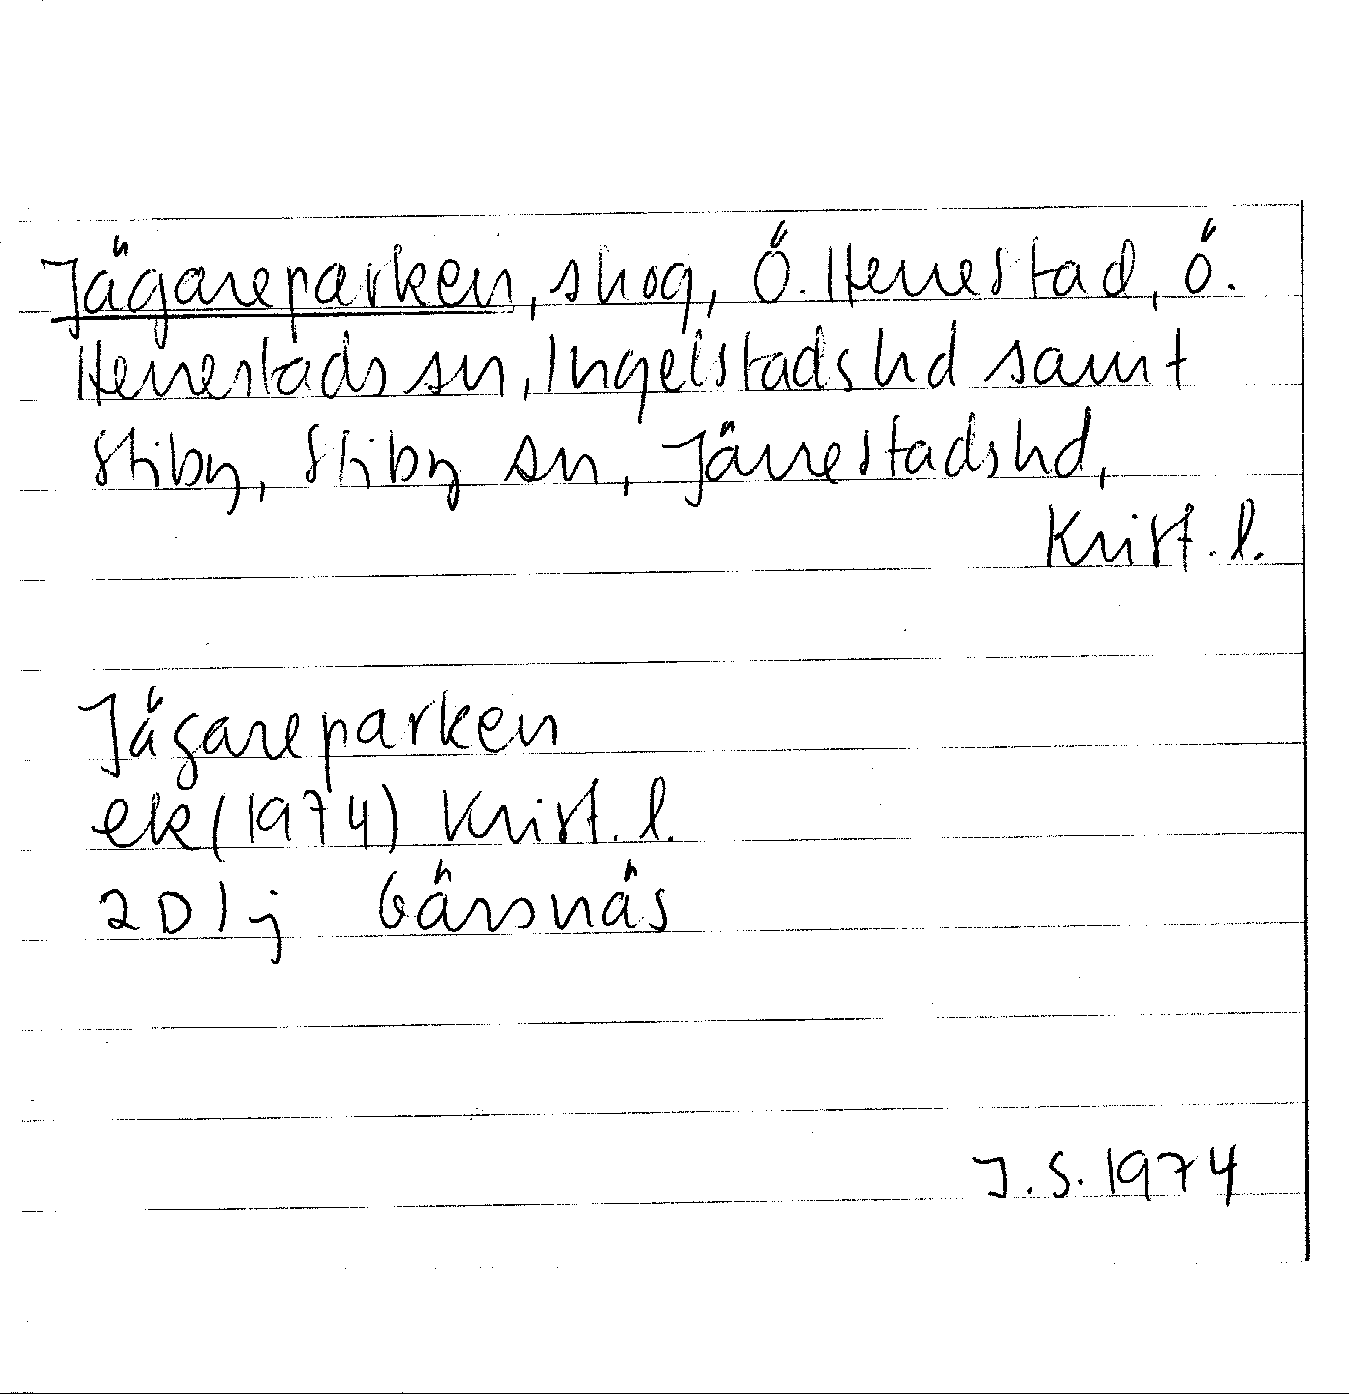 Jägareparken, skog, Ö. Herrestad, Ö.
Herrestads sn, Ingelstads hd samt
Stiby, Stiby sn, Järrestads hd,
Krist. l.
Jägareparken
ek (1974) Krist. l.
2D 1j Gärsnäs
J.S. 1974